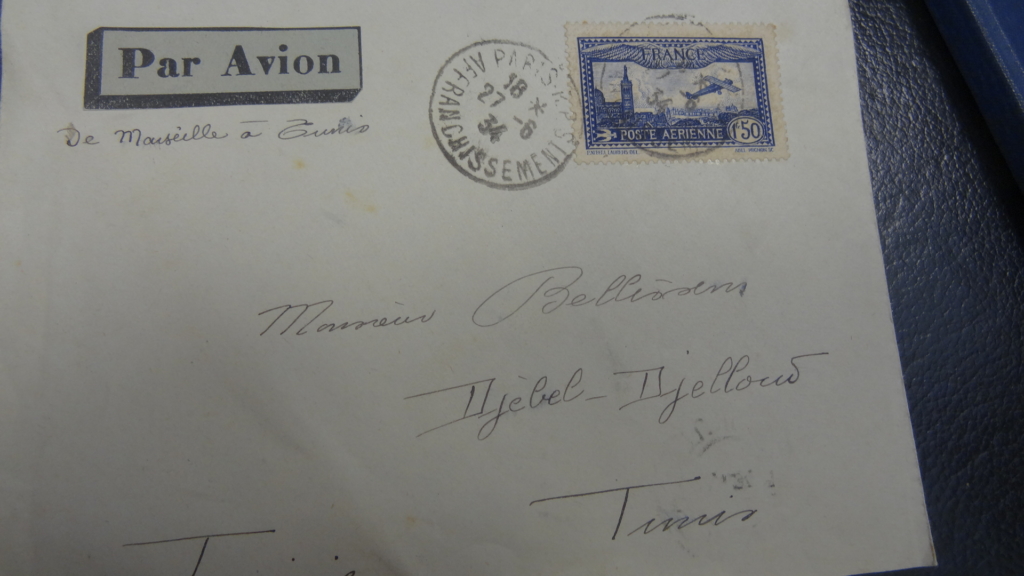 Par Avion
De Marseille à Tunis
PARIS
AFFRANCHISSEMENTS
18 *
27 - 6
34
FRANCE
POSTE AERIENNE
1F50
Monsieur Bellissens
Djébel-Djelloud
Tunis